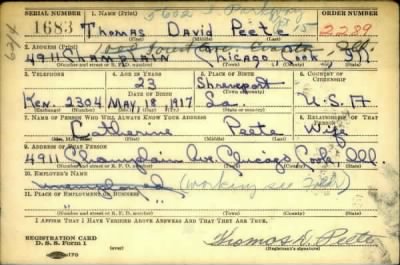 SERIAL NUMBER 1. NAME (Print) ORDER NUMBER
1683 Thomas David Peete 2229
(First) (Middle) (Last)
2. ADDRESS (Print)
4911 CHAMPLAIN Chicago, Cook, Ill.
(Number and street or R. F. D. number) (Town) (County) (State)
3. TELEPHONE 4. AGE IN YEARS 5. PLACE OF BIRTH 6. COUNTRY OF CITIZENSHIP
23 Shreveport
DATE OF BIRTH (Town or county)
Ken. 2304 May, 18, 1917 La. U.S.A
(Exchange) (Number) (Mo.) (Day) (Yr.) (State or country)
7. NAME OF PERSON WHO WILL ALWAYS KNOW YOUR ADDRESS 8. RELATIONSHIP OF THAT PERSON
Catherine Peete Wife
(Mr., Mrs., Miss) (First) (Middle) (Last)
9. ADDRESS OF THAT PERSON
4911 Champlain Ave. Chicago, Cook, Ill.
(Number and street or R. F. D. number) (Town) (County) (State)
10. EMPLOYER'S NAME
unemployed (working see
11. PLACE OF EMPLOYMENT OR BUSINESS
(Number and street or R. F. D. number) (Town) (County) (State)
I AFFIRM THAT I HAVE VERIFIED ABOVE ANSWERS AND THAT THEY ARE TRUE.
REGISTRATION CARD
D. S. S. Form 1 Thomas D. Peete
(Registrant's signature)